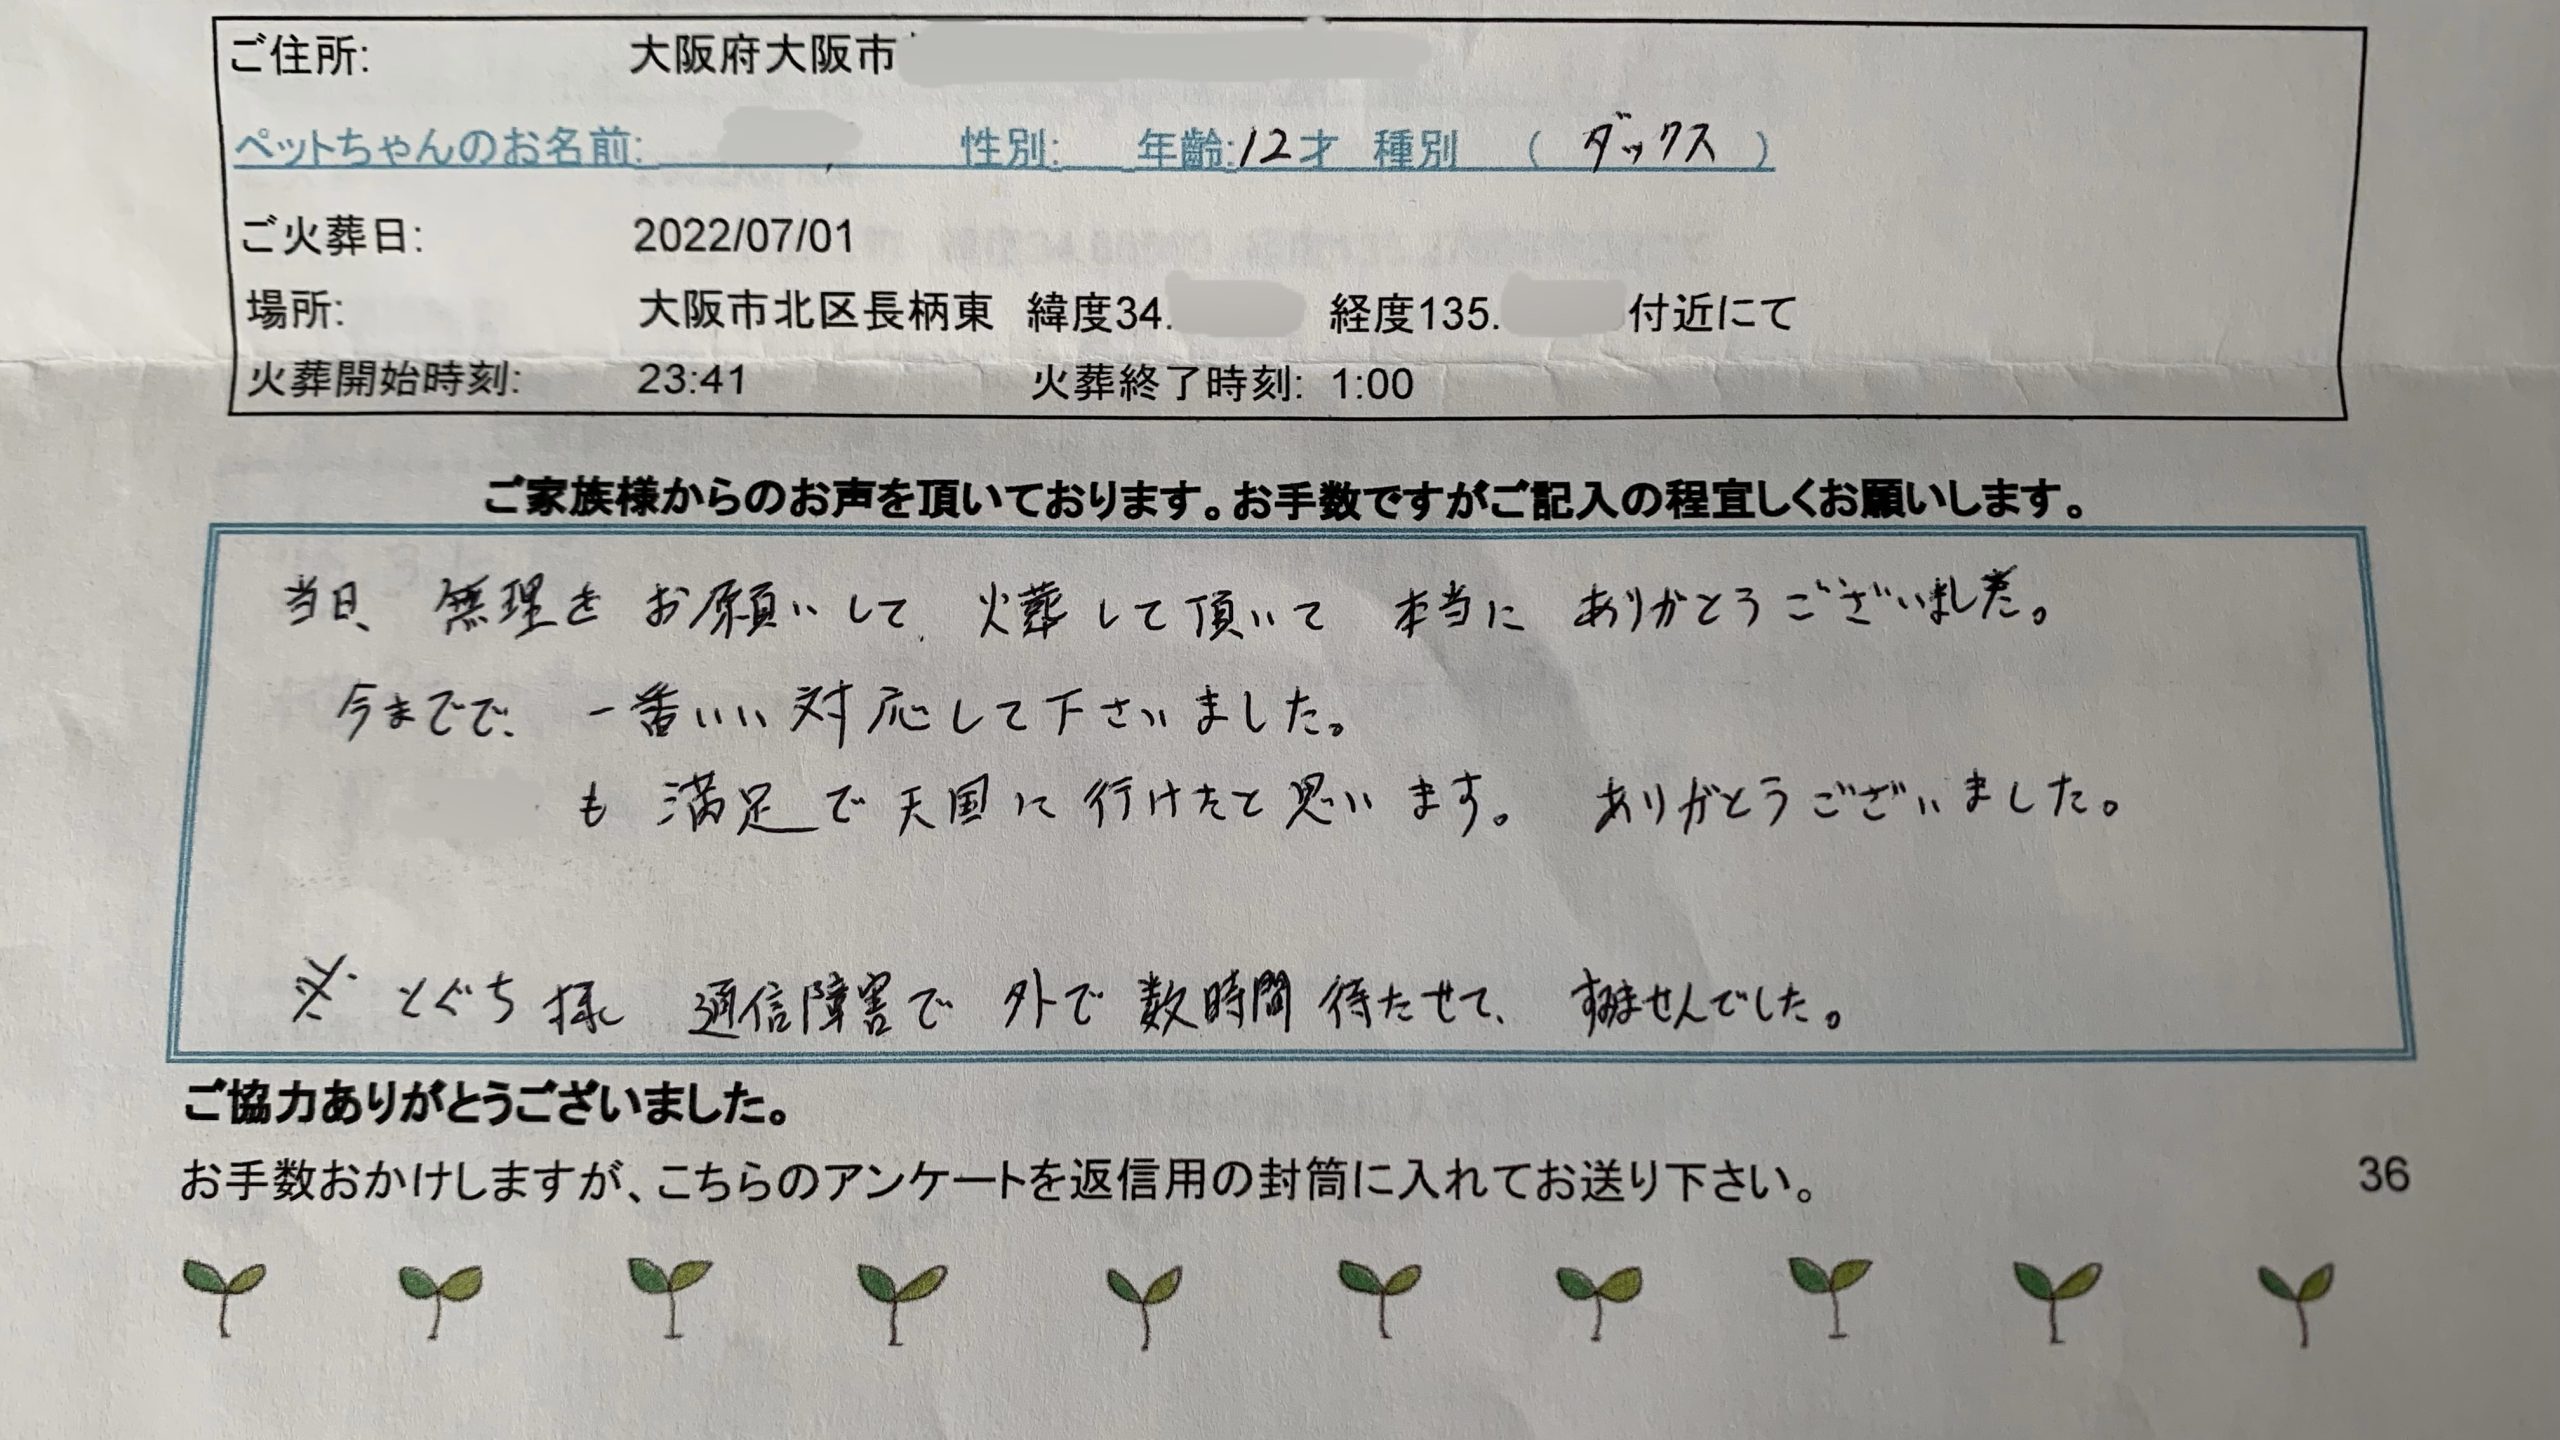 ご住所: 大阪府大阪市
ペットちゃんのお名前: 性別: 年齢:12才 種別 ( ダックス )
ご火葬日: 2022/07/01
場所: 大阪市北区長柄東 緯度34. 経度135. 付近にて
火葬開始時刻: 23:41 火葬終了時刻: 1:00
ご家族様からのお声を頂いております。お手数ですがご記入の程宜しくお願いします。
当日、無理をお願いして、火葬して頂いて 本当に ありがとうございました。
今までで、一番いい対応して下さいました。
も 満足で天国に行けたと思います。 ありがとうございました。
※ とぐち様 通信障害で 外で 数時間 待たせて、 すみませんでした。
ご協力ありがとうございました。
お手数おかけしますが、こちらのアンケートを返信用の封筒に入れてお送り下さい。 36